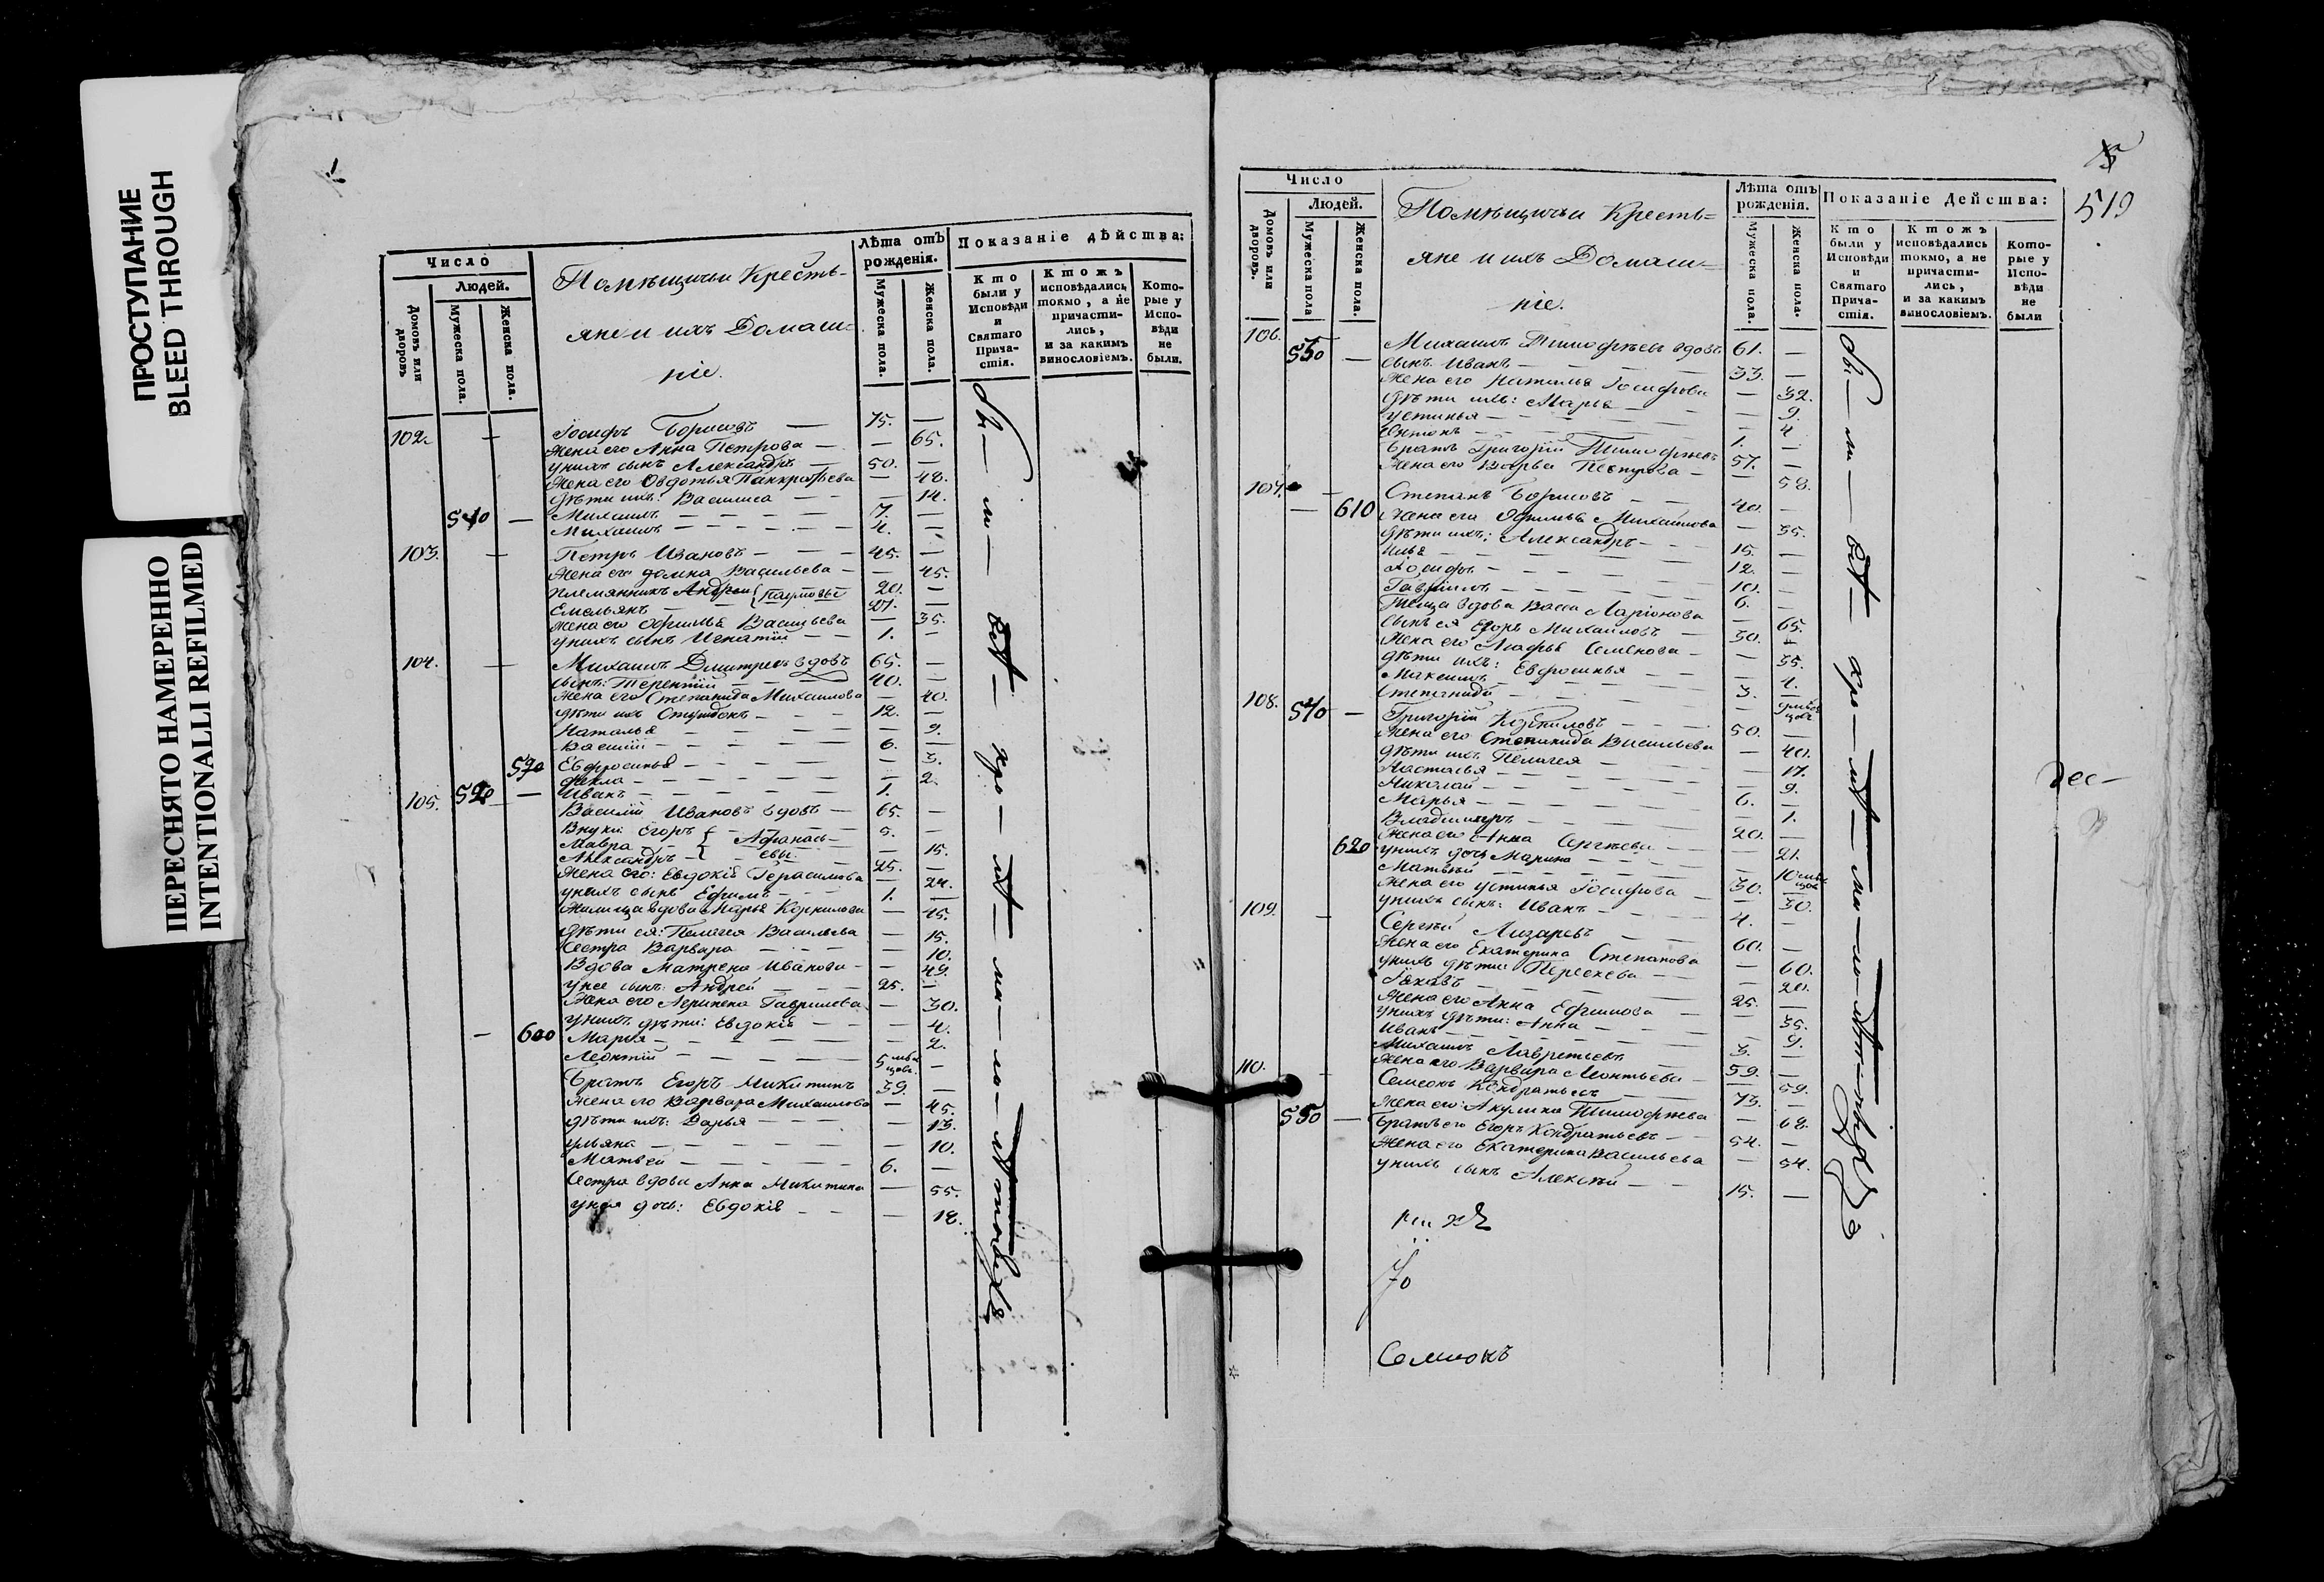 ПРОСТУПАНИЕ
BLEED THROUGH
ПЕРЕСНЯТО НАМЕРЕННО
INTENTIONALLI REFILMED
Число
Людей.
Домовъ или дворовъ
Мужеска пола.
Женска пола.
Помѣщичьи Кресть-
яне и ихъ Домаш-
ніе.
Лѣта отъ рожденія.
Мужеска пола.
Женска пола.
Показаніе дѣйства:
Кто были у Исповѣди и Святаго Прича-стія.
Ктожъ исповѣдались токмо, а не причасти-лись, и за какимъ винословіемъ.
Кото-рые у Испо-вѣди не были.
102. — Іосифъ Борисовъ — 75. —
Жена его Анна Петрова — — 65.
у нихъ сынъ Александръ — 50. —
Жена его Овдотья Панкратьева — 48.
дѣти ихъ: Василиса — — — 14.
Михаилъ — — — 7. —
540 — Михаилъ — — — 4. —
103. — Петръ Ивановъ — — — 45. —
Жена его Домна Васильева — — 45.
племянникъ Андрей 20. —
Емельянъ — 27. —
Жена его Офимья Васильева — 35.
у нихъ сынъ Игнатій — — 1. —
104. — Михаилъ Дмитревъ вдовъ 65. —
сынъ: Терентій — — 40. —
Жена его Степанида Михаилова — 40.
дѣти ихъ — — — 12. —
Наталья — — — — 9.
Василій — — — 6. —
590 Евфросинья — — — — 3.
Фекла — — — — 2.
520 — Иванъ — — — 1.
105. Василій Ивановъ вдовъ — 65. —
Внуки Егоръ { — Афанась- 9. —
Мавра — { евы. — 15.
Александръ — { 25. —
Жена его: Евдокія Герасимова — 24.
у нихъ сынъ Ефимъ — — 1. —
вдова Марья Корнилова — 45.
дѣти ея: Пелагея Васильева — 15.
Сестра Варвара — — — 10.
Вдова Матрена Иванова — — 49.
у нее сынъ: Андрей — — 25. —
Жена его Гаврилева — 30.
у нихъ дѣти: Евдокія — — — 4.
— 600 Марья — — — — 2.
Леонтій — — — 5 мѣсяцовъ. —
Братъ Егоръ Микитинъ 39. —
Жена его Варвара Михаилова — 45.
дѣти ихъ: Дарья — — — 13.
Ульяна — — — — 10.
Матвей — — — 6. —
Сестра вдова Анна Микитина — 55.
у нея дочь: Евдокія — — — 18.
Число
Людей.
Домовъ или дворовъ.
Мужеска пола
Женска пола.
Помѣщичьи Кресть=
яне и ихъ Домаш=
ніе.
Лѣта отъ рожденія.
Мужеска пола.
Женска пола.
Показаніе Дейсшва:
Кто были у Исповѣди и Святаго Прича-стія.
Ктожъ исповѣдались токмо, а не причасти-лись, и за какимъ винословіемъ.
Кото-рые у Испо-вѣди не были
519
106. Михаилъ Тимофѣевъ вдовъ 61. —
530 — сынъ Иванъ — — — 33. —
Жена его Наталья Іосифова — 32.
дѣти ихъ: Марья — — — 9.
Устинья — — — — 4
Антонъ — — — 1. —
Братъ Григорій Тимофѣевъ 57. —
Жена его Дарья Пестрова — — 58.
107. — Степанъ Борисовъ — — 40. —
— 610 Жена его Офимья Михаилова — 35.
дѣти ихъ: Александръ — — 15. —
Илья — — — 12. —
Іосифъ — — — 10. —
Гавріилъ — — — 6. —
Теща вдова Васса Ларіонова — 65.
сынъ ея Егоръ Михаиловъ — 30. —
Жена его Агафья Семенова — — 35.
дѣти ихъ: Евфросинья — — — 4.
Максимъ — — — 3. —
Степанида — — —
108. 540 — Григорій Корниловъ — — 50. —
Жена его Степанида Васильева — 40.
дѣти ихъ Пелагея — — — 17.
Настасья — — — — 9.
Николай — — — 6. —
Марья — — — — 1.
Владимиръ — — — 20. —
620 Жена его Анна Сергѣева — — 21.
у нихъ дочь Марина — — 10 мѣсяцовъ
Матвѣй — — — 30. —
Жена его Устинья Іосифова — 30.
у нихъ сынъ: Иванъ — — 4. —
109. — Сергѣй Лазаревъ — 60. —
Жена его Екатерина Степанова — 60.
у нихъ дѣти: Перескева — — 20.
Іаковъ — — — 25. —
Жена его Анна Ефимова — — 35.
у нихъ дѣти: Анна — — — 9.
Иванъ — — — 3. —
Михаилъ Лаврентьевъ 59. —
Жена его Варвара Леонтьева — — 59.
110. — Семеонъ Кондратьевъ 73. —
Жена его: Акулина Тимофѣева — 68.
550 — Братъ его Егоръ Кондратьевъ — 54. —
Жена его Екатерина Васильева — 54.
у нихъ сынъ Алексѣй — — 15. —
дес-
Семионъ